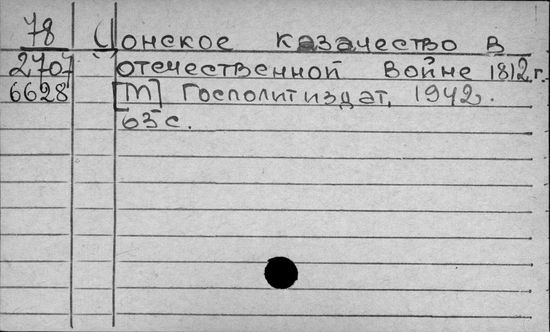 78 Донское казачество в
2707 отечественной войне 1812 г.
6628 [М] Госполитиздат, 1942.
63 с.